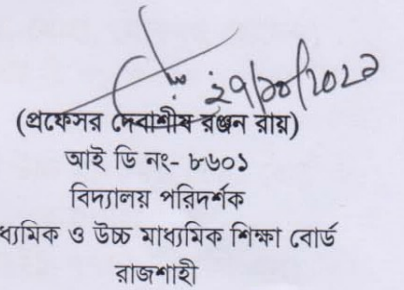 ২৭/১০/২০২১
(প্রফেসর দেবাশীষ রঞ্জন রায়)
আই ডি নং- ৮৬০১
বিদ্যালয় পরিদর্শক
ধ্যমিক ও উচ্চ মাধ্যমিক শিক্ষা বোর্ড
রাজশাহী